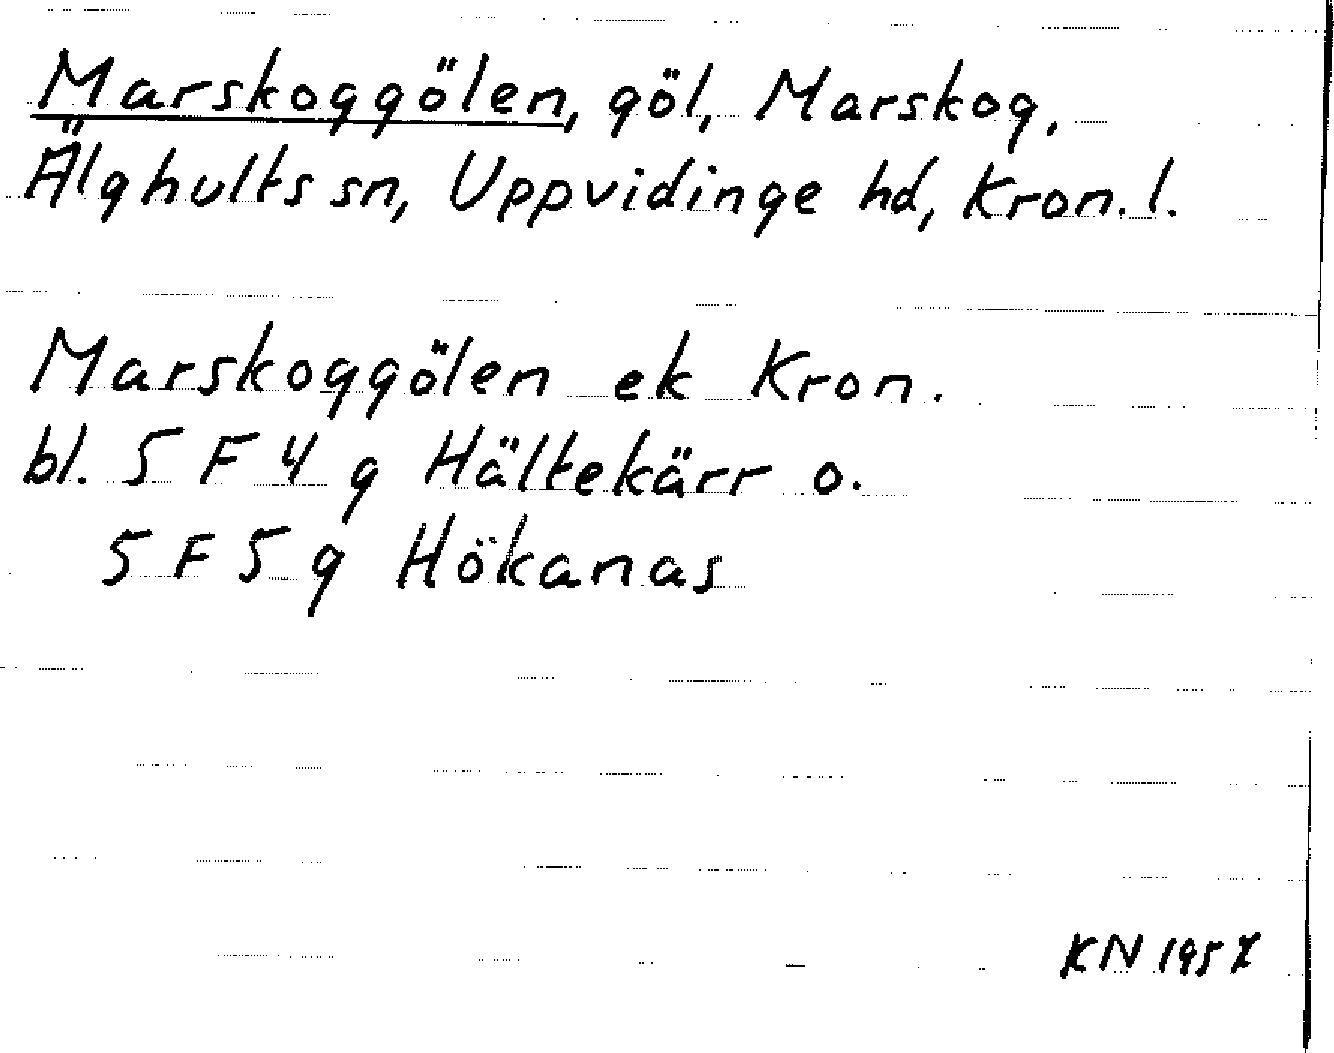 Marskoggölen, göl, Marskog,
Älghults sn, Uppvidinge hd, Kron. l.
Marskoggölen ek Kron.
bl. 5 F 4 g Hältekärr o.
5 F 5 g Hökanas
KN 1957